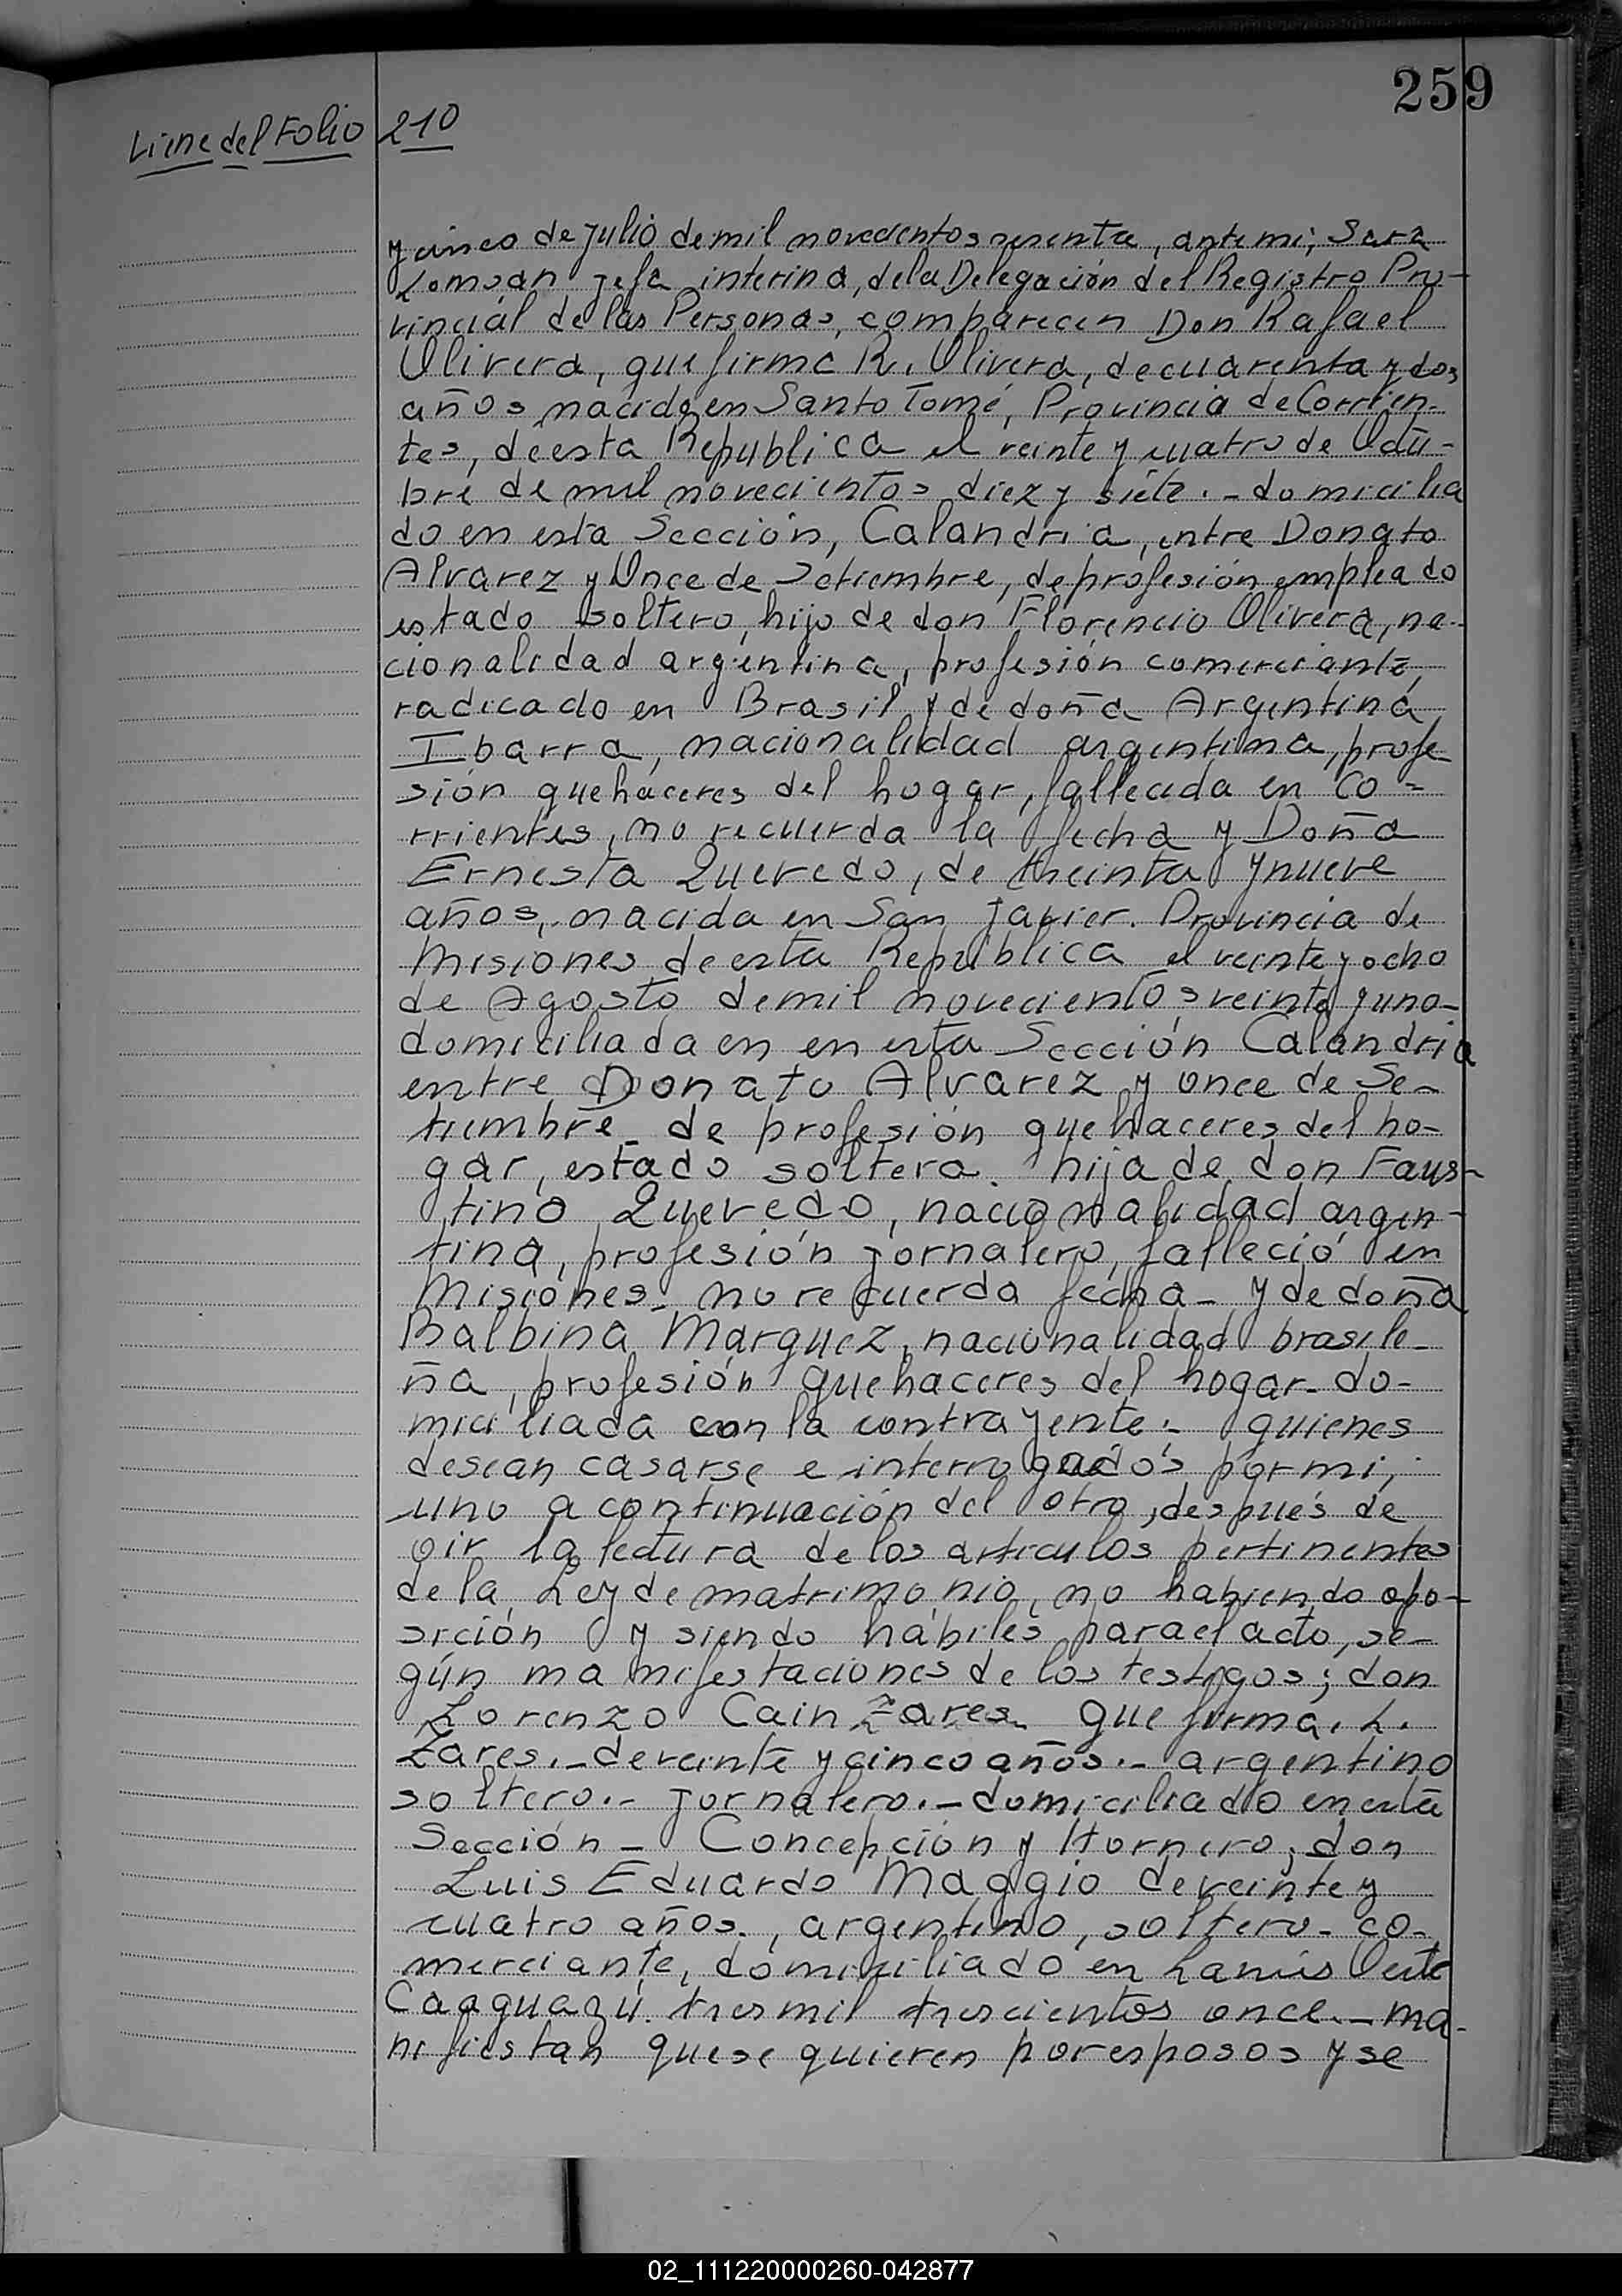 259
Viene del Folio 210
y cinco de julio de mil novecientos sesenta, ante mi; Sara
jefa interina, de la Delegación del Registro Pro-
vincial de las Personas, comparecen Don Rafael
Olivera, que firma R. Olivera, de cuarenta y dos
años nacido en Santo Tomé, Provincia de Corrien-
tes, de esta Republica el veinte y cuatro de Octu-
bre de mil novecientos diez y siete.- domicilia
do en esta Sección, Calandria, entre Donato
Alvarez y Once de Setiembre, de profesión empleado
estado soltero, hijo de don Florencio Olivera, na-
cionalidad argentina, profesión comerciante,
radicado en Brasil y de doña Argentina
Ibarra, nacionalidad argentina, profe
sión quehaceres del hogar, fallecida en Co=
rrientes, no recuerda la fecha y Doña
Ernesta Quevedo, de treinta y nueve
años, nacida en San Javier. Provincia de
Misiones de esta Republica el veinte y ocho
de Agosto de mil novecientos veinte y uno-
domiciliada en en esta Sección Calandria
entre Donato Alvarez y once de Se-
tiembre- de profesión quehaceres del ho-
gar, estado soltera. hija de don Faus-
tino Quevedo, nacionalidad argen-
tina, profesión jornalero, falleció en
Misiones- no recuerda fecha- y de doña
Balbina Marquez, nacionalidad brasile-
ña, profesión quehaceres del hogar- do-
miciliada con la contrayente.- quienes
desean casarse e interrogados por mi,
uno a continuación del otro, después de
oir la lectura de los articulos pertinentes
de la Ley de matrimonio, no habiendo opo-
sición y siendo hábiles para el acto, se-
gún manifestaciones de los testigos; don
Lorenzo Cain Zares- que firma. L.
Zares.- de veinte y cinco años.- argentino
soltero.- jornalero.- domiciliado en esta
Sección- Concepción y Hornero; don
Luis Eduardo Maggio de veinte y
cuatro años., argentino, soltero- co-
merciante, domiciliado en Lanús Oeste
Caaguazú tres mil trescientos once.- ma-
nifiestan que se quieren por esposos y se
02_111220000260-042877